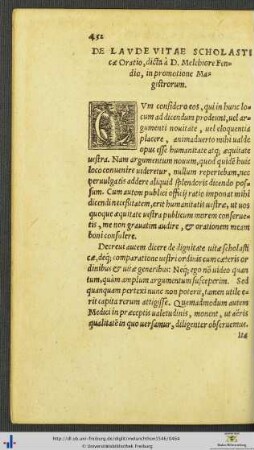 452
DE LAVDE VITAE SCHOLASTI
cæ Oratio, dicta à D. Melchiore Fen-
dio, in promotione Ma-
gistrorum.
CVm considero eos, qui in hunc lo-
cum ad dicendum prodeunt, uel ar-
gumenti nouitate, uel eloquentia
placere, animaduerto mihi ualde
opus esse humanitate atq; æquitate
uestra. Nam argumentum nouum, quod quidē huic
loco conuenire uideretur, nullum reperiebam, nec
peruulgatis addere aliquid splendoris dicendo pos-
sum. Cum autem publici officij ratio imponat mihi
dicendi necessitatem, erit humanitatis uestræ, ut uos
quoque æquitate uestra publicum morem conserue-
tis, me non grauatim audire, & orationem meam
boni consulere.
Decreui autem dicere de dignitate uitæ scholasti
cæ, deq́; comparatione uestri ordinis cum cæteris or
dinibus & uitæ generibus: Neq; ego nō uideo quan
tum, quàm amplum argumentum susceperim. Sed
quanquam pertexi nunc non poterit, tamen utile e-
rit capita rerum attigisse. Quemadmodum autem
Medici in præceptis ualetudinis, monent, ut aëris
qualitatē in quo uersamur, diligenter obseruemus.
ita
http://dl.ub.uni-freiburg.de/diglit/melanchthon1546/0464
© Universitätsbibliothek Freiburg